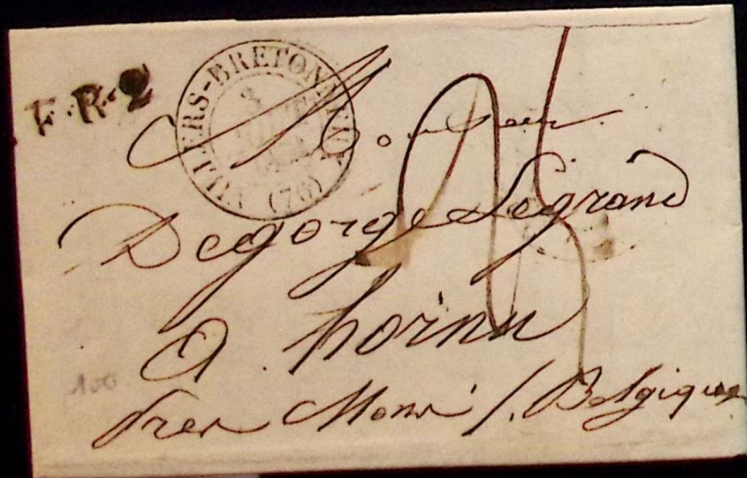 F.R.2
VILLERS-BRETONNEUX (76)
3
AOUT
Monsieur
Degorge Legrand
a hornu
Pres Mons / Belgique
100